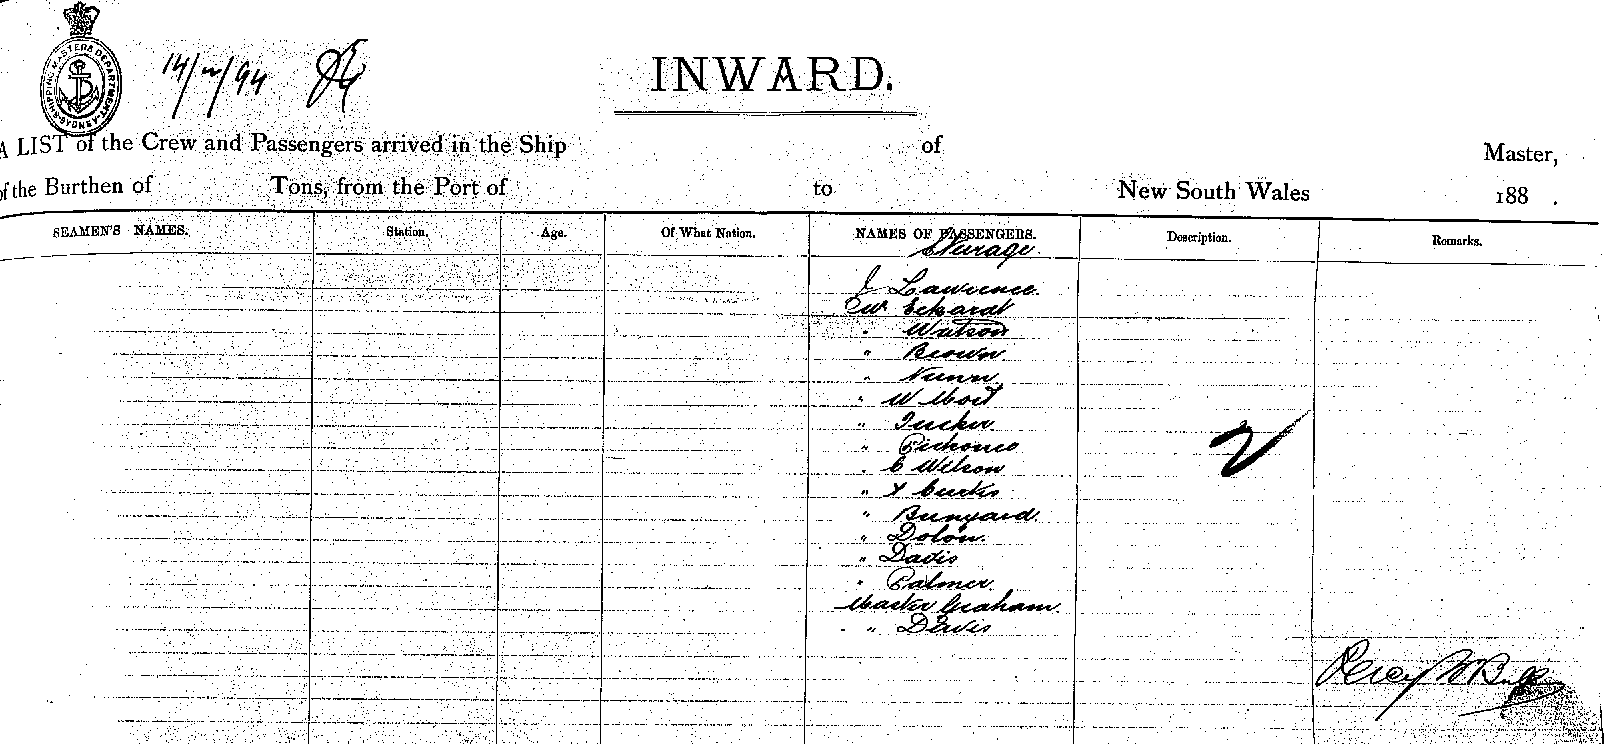 SHIPPING MASTERS DEPARTMENT SYDNEY
14/ /94
INWARD.
A LIST of the Crew and Passengers arrived in the Ship of Master,
of the Burthen of Tons, from the Port of to New South Wales 188 .
SEAMEN'S NAMES. Station. Age. Of What Nation. NAMES OF PASSENGERS. Description. Remarks.
Steerage.
J Lawrence.
Eckardt
" Watson
" Brown
" Nunn
"
" Tucker
"
" C Wilson
" Curtis
" Bunyard.
" Dolon.
" Davis
" Palmer.
Master Graham.
" Davis
Percy